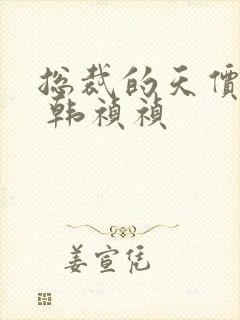 总裁的天價
韩禎禎
姜宣凭